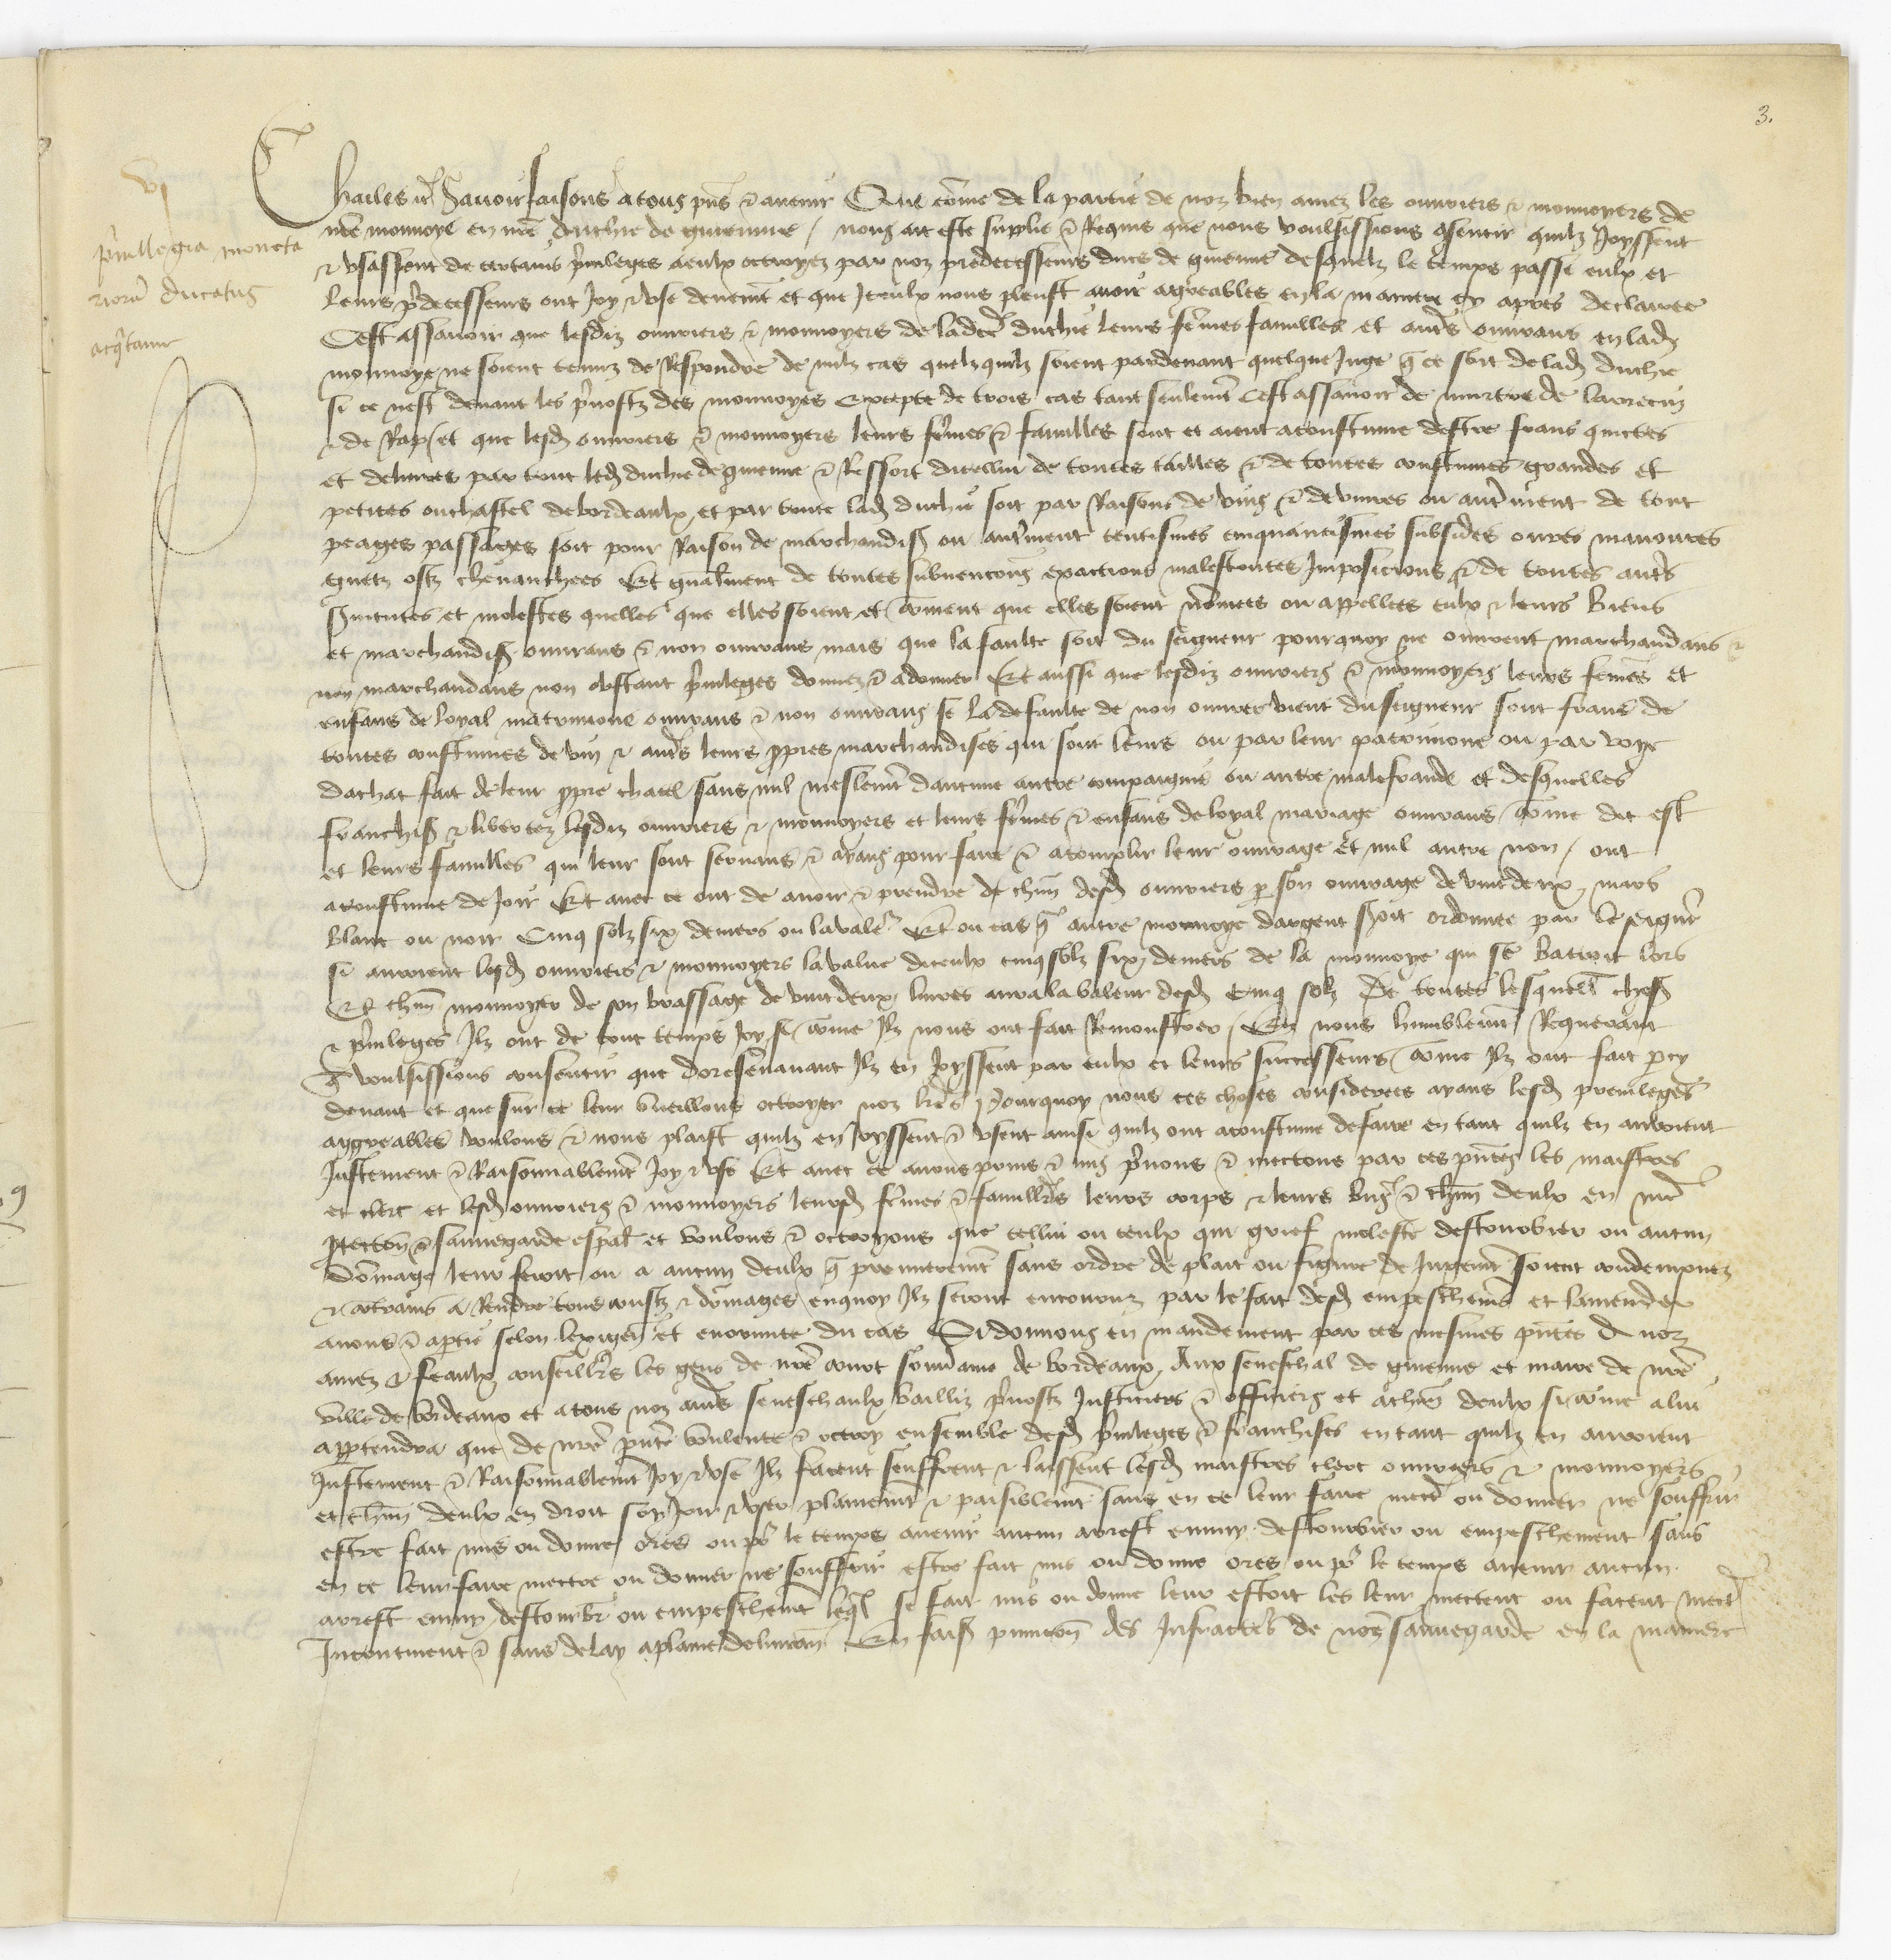 3.
vj
privillegia moneta
riorum ducatus
acquitanie
Charles etc Savoir faisons a tous presens & avenir Que comme de la partie de noz bien amez les ouvriers & monnoyers de
nostre monnoye en nostre duchie de guienne / nous ait este supplie & Requis que nous voulsissions consentir quilz Joyssent
& usassent de certains privileges a eulx octroyez par noz predecesseurs ducs de guienne desquelz le temps passe eulx et
leurs predecesseurs ont Joy & use deuement et que Iceulx nous pleust avoir agreables en la maniere cy apres declairee
Cest assavoir que lesdiz ouvriers & monnoyers de ladicte duchie leurs femmes familles et autres ouvrans en lad
monnoye ne soient tenuz de Respondre de nulz cas quelzquilz soient pardevant quelque Juge que ce soit de lad duchie
si ce nest devant les prevostz des monnoyes Excepte de trois cas tant seulement Cest assavoir de murtre de larrecin
& de Rap / et que lesd ouvriers & monnoyers leurs femmes & familles sont et aient acoustume destre frans quictes
et delivres par tout led duchie de guienne & Ressort dicellui de toutes tailles & de toutes coustumes grandes et
petites ou chastel de bordeaulx et par toute lad duchie soit par Raison de vins & de vivres ou autrement de tout
peages passages soit pour Raison de marchandise ou autrement centismes cinquantismes subsides ouvres manouvres
guetz ostz chevauchees Et generalment de toutes subvencons exactions malestoutes Imposicions & de toutes autres
servitutes et molestes quelles que elles soient et comment que elles soient nommees ou appellees eulx & leurs Biens
et marchandises ouvrans & non ouvrans mais que la faulte soit du seigneur pourquoy ne ouvrent marchandans &
non marchandans non obstant privileges donnez & adonner Et aussi que lesdiz ouvriers & monnoyers leurs femmes et
enfans de loyal matrimoine ouvrans & non ouvrans se la defaulte de non ouvrer vient du seigneur sont frans de
toutes coustumes de vin & autres leurs propres marchandises qui sont leurs ou par leur patrimoine ou par voye
dachat fait de leur propre chatel sans nul meslement daucune autre compaignie ou autre malefraude et desquelles
franchises & libertez lesdiz ouvriers & monnoyers et leurs femmes & enfans de loyal mariage ouvrans / comme dit est
et leurs familles qui leur sont servans & aydans pour faire & acomplir leur ouvrage et nul autre non / ont
acoustume de Joir Et avec ce ont de avoir & prendre de chacun desd ouvriers por son ouvrage de vint deux mars
blanc ou noir Cinq solz six deniers ou la valer Et ou cas que autre monnoye dargent seroit ordonnee par le seigneur
si auroient lesd ouvriers & monnoyers la value diceulx cinq solz six deniers de la monnoye qui se batroit lors
Et chacun monnoyer de son brassage de vint deux livres aura la valeur desd cinq solz De toutes lesquelles choses
& privileges Ilz ont de tout temps Joy si comme Ilz nous ont fait Remonstrer / En nous humblement Requerant
que voulsissions consentir que doresenavant Ilz en Joyssent par eulx et leurs successeurs / comme Ilz ont fait par cy
devant et que sur ce leur vueillons octroyer noz lettres Pourquoy nous ces choses considerees ayans lesd previleges
aggreables voulons & nous plaist quilz en Joyssent & usent ainsi quilz ont acoustume de faire en tant quilz en auroient
Justement & Raisonnablement Joy & use Et avec ce avons prins & mis prenons & mectons par ces presentes les maistres
et clerc et lesd ouvriers & monnoyers leursd femmes & familles leurs corps & leurs biens & chacun deulx en nostre
protection & sauvegarde especial et voulons & octroyons que cellui ou ceulx qui grief moleste destourbier ou aucun
dommage leur feroit ou a aucun deulx que premierement sans ordre de plait ou figure de Jugement soient condempnez
& contrains a Rendre tous coustz & dommages enquoy Ilz seront encouruz par le fait desd empeschemens et lamender
a nous & a partie selon lexigence et enormite du cas Si donnons en mandement par ces mesmes presentes A noz
amez & feaulx conseillers les gens de nostre court souveraine de bordeaux Aux seneschal de guienne et maire de nostre
ville de bordeaux et a tous noz autres seneschaulx bailliz prevostz Justiciers & officiers et a chacun deulx si comme a lui
appartendra que de nostre presente voulente & octroy ensemble desd privileges & franchises en tant quilz en auroient
Justement & Raisonnablement Joy & use Ilz facent seuffrent & laissent lesd maistres clerc ouvriers & monnoyers
et chacun deulx en droit soy Joir & user plainement & paisiblement sans en ce leur faire mectre ou donner ne souffrir
estre fait mis ou donne ores ou pour le temps avenir aucun arrest ennuy destourbier ou empeschement sans
en ce leur faire mectre ou donner ne souffrir estre fait mis ou donne ores ou pour le temps avenir aucun
arrest ennuy destourbier ou empeschement lequel se fait mis ou donne leur estoit les leur mectent ou facent mectre
Incontinent & sans delay a plaine delivrance En faisant punicion des Infracteurs de nostre sauvegarde en la maniere